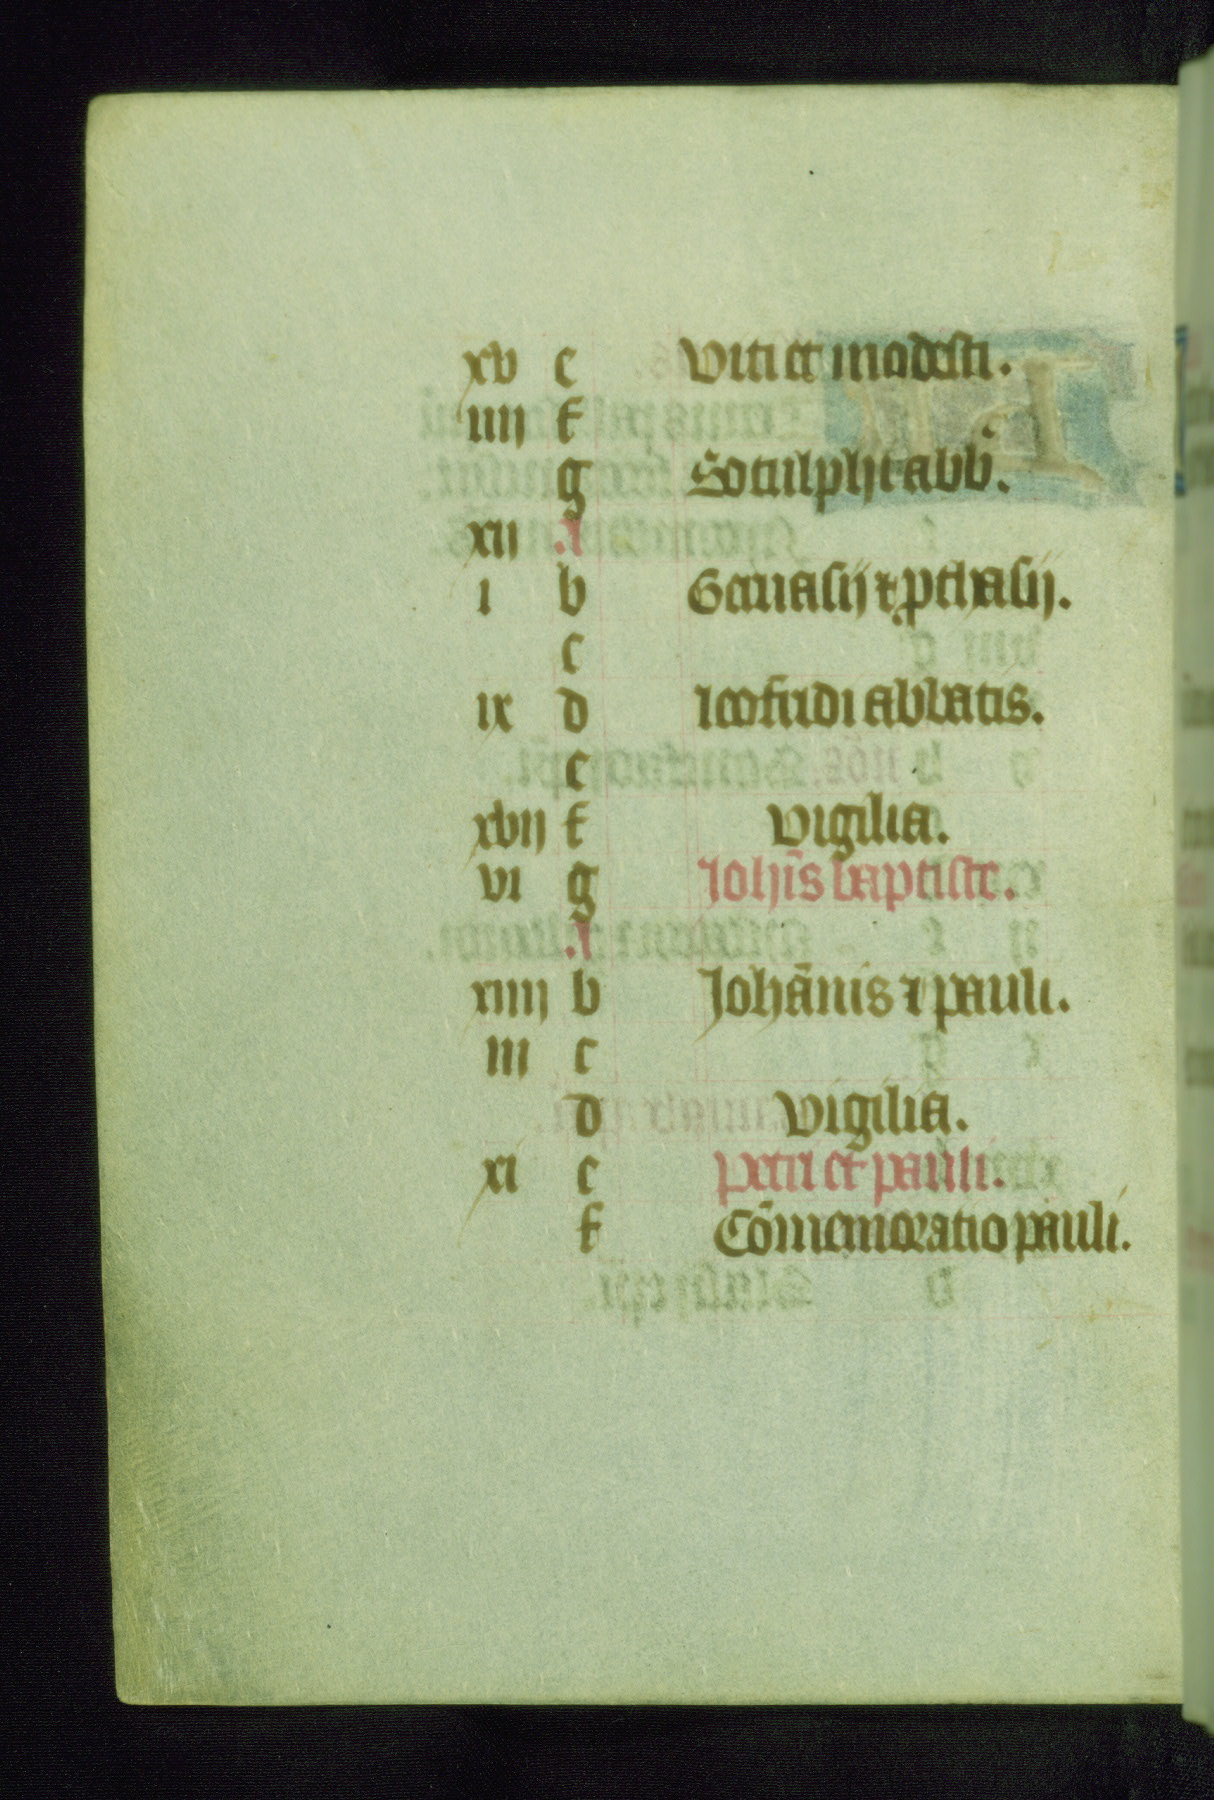 xv e Viti et modesti.
iiij f
g Botulphi abb̄.
xij A
i b Geruasij ⁊ ꝓthasij.
c
ix d leofridi abbatis.
e
xvij f vigilia.
vi g Joh̄is baptiste.
A.
xiiij b Johānis ⁊ pauli.
iii c
d vigilia.
xi e Petri et pauli.
f Cōmemoratio pauli.